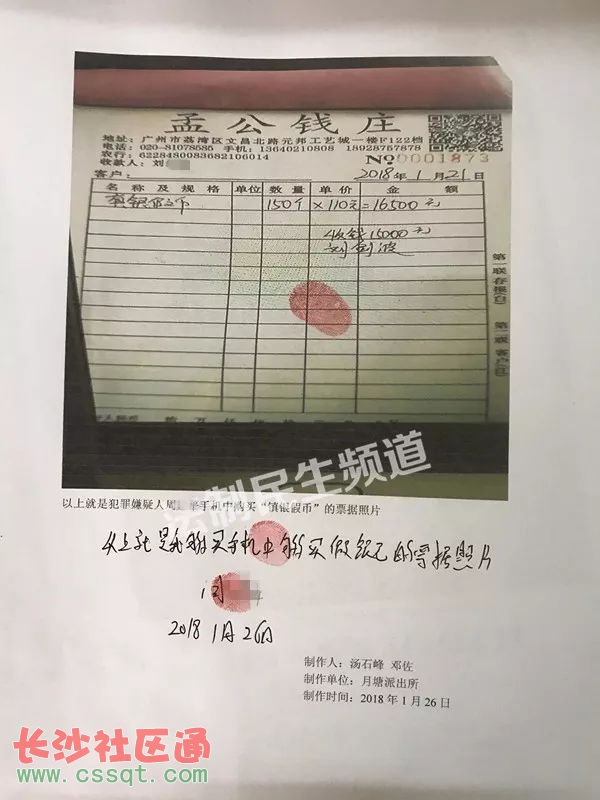 孟公钱庄
地址：广州市荔湾区文昌北路元邦工艺城一楼F122档
电话：020-81078585 手机：13640210808 18928767878
农行：6228480083682106014
收款人：刘
No 0001873
客户： 2018年1月21日
名称及规格 单位 数量 单价 金额
假币 150个 ×110元=16500元
收钱15000元
刘剑波
第一联存根(白)
第二联客户(红)
法制民生频道
以上就是犯罪嫌疑人周 手机中购买“镇银假币”的票据照片
以上就是我购买手机中购买假银元的票据照片
周
2018 1月26日
制作人：汤石峰 邓佐
制作单位：月塘派出所
制作时间：2018年1月26日
长沙社区通
www.cssqt.com